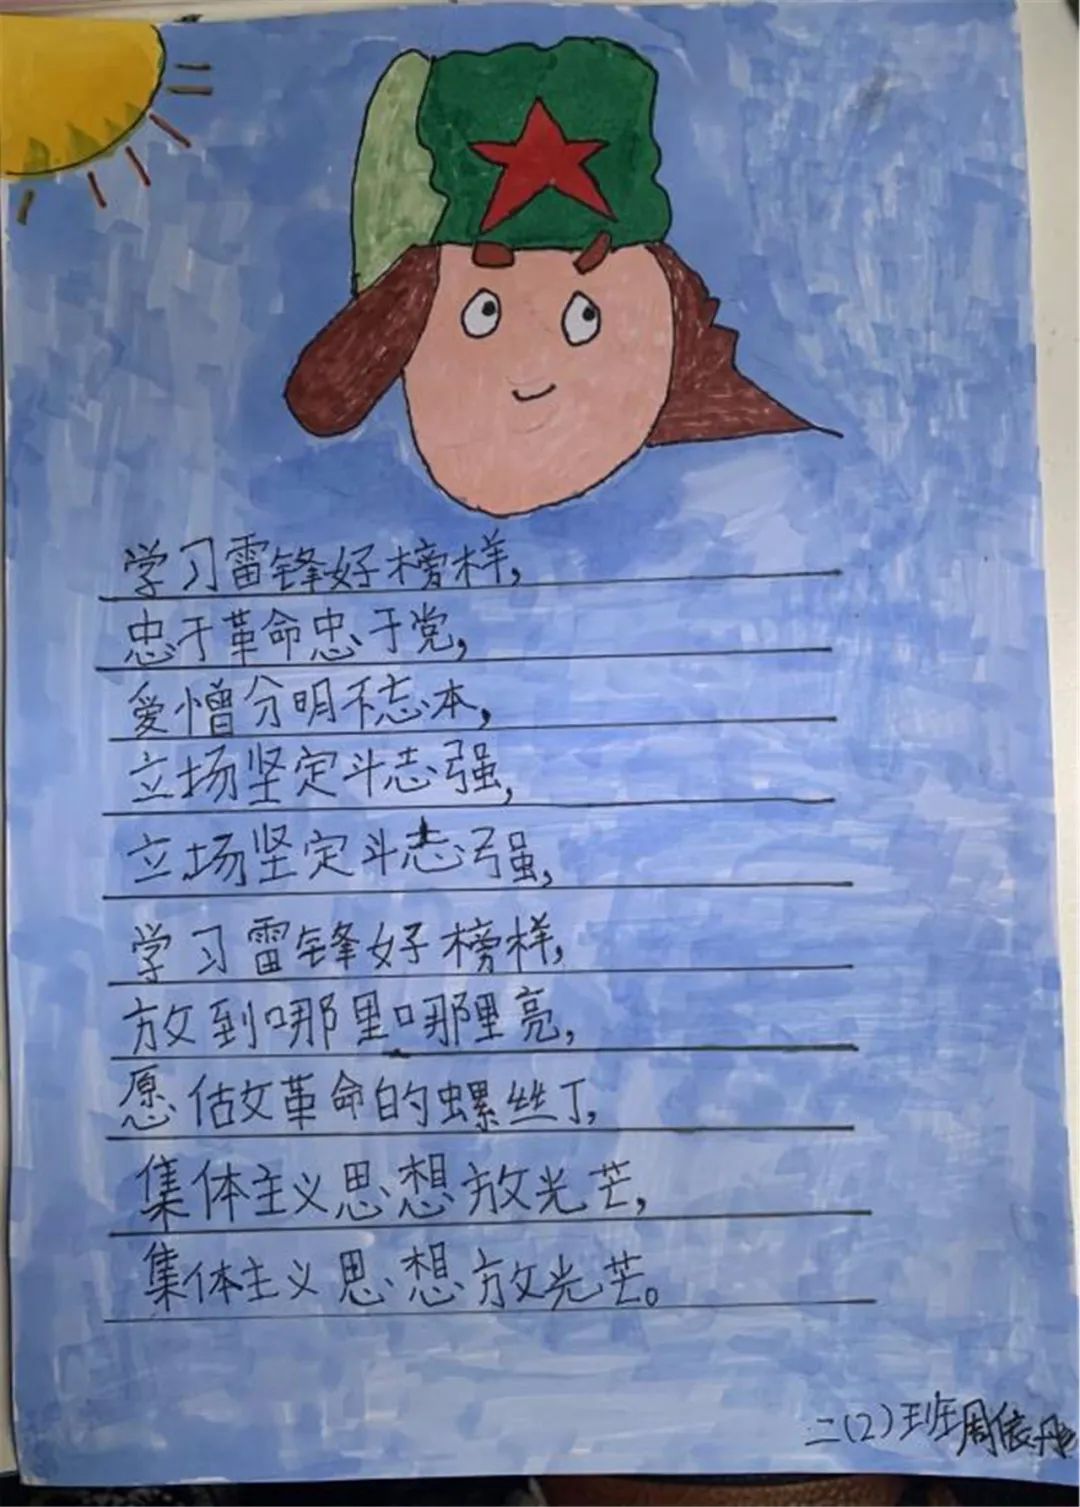 学习雷锋好榜样,
忠于革命忠于党,
爱憎分明不忘本,
立场坚定斗志强,
立场坚定斗志强,
学习雷锋好榜样,
放到哪里哪里亮,
愿做革命的螺丝丁,
集体主义思想放光芒,
集体主义思想放光芒。
二(2)班周依丹